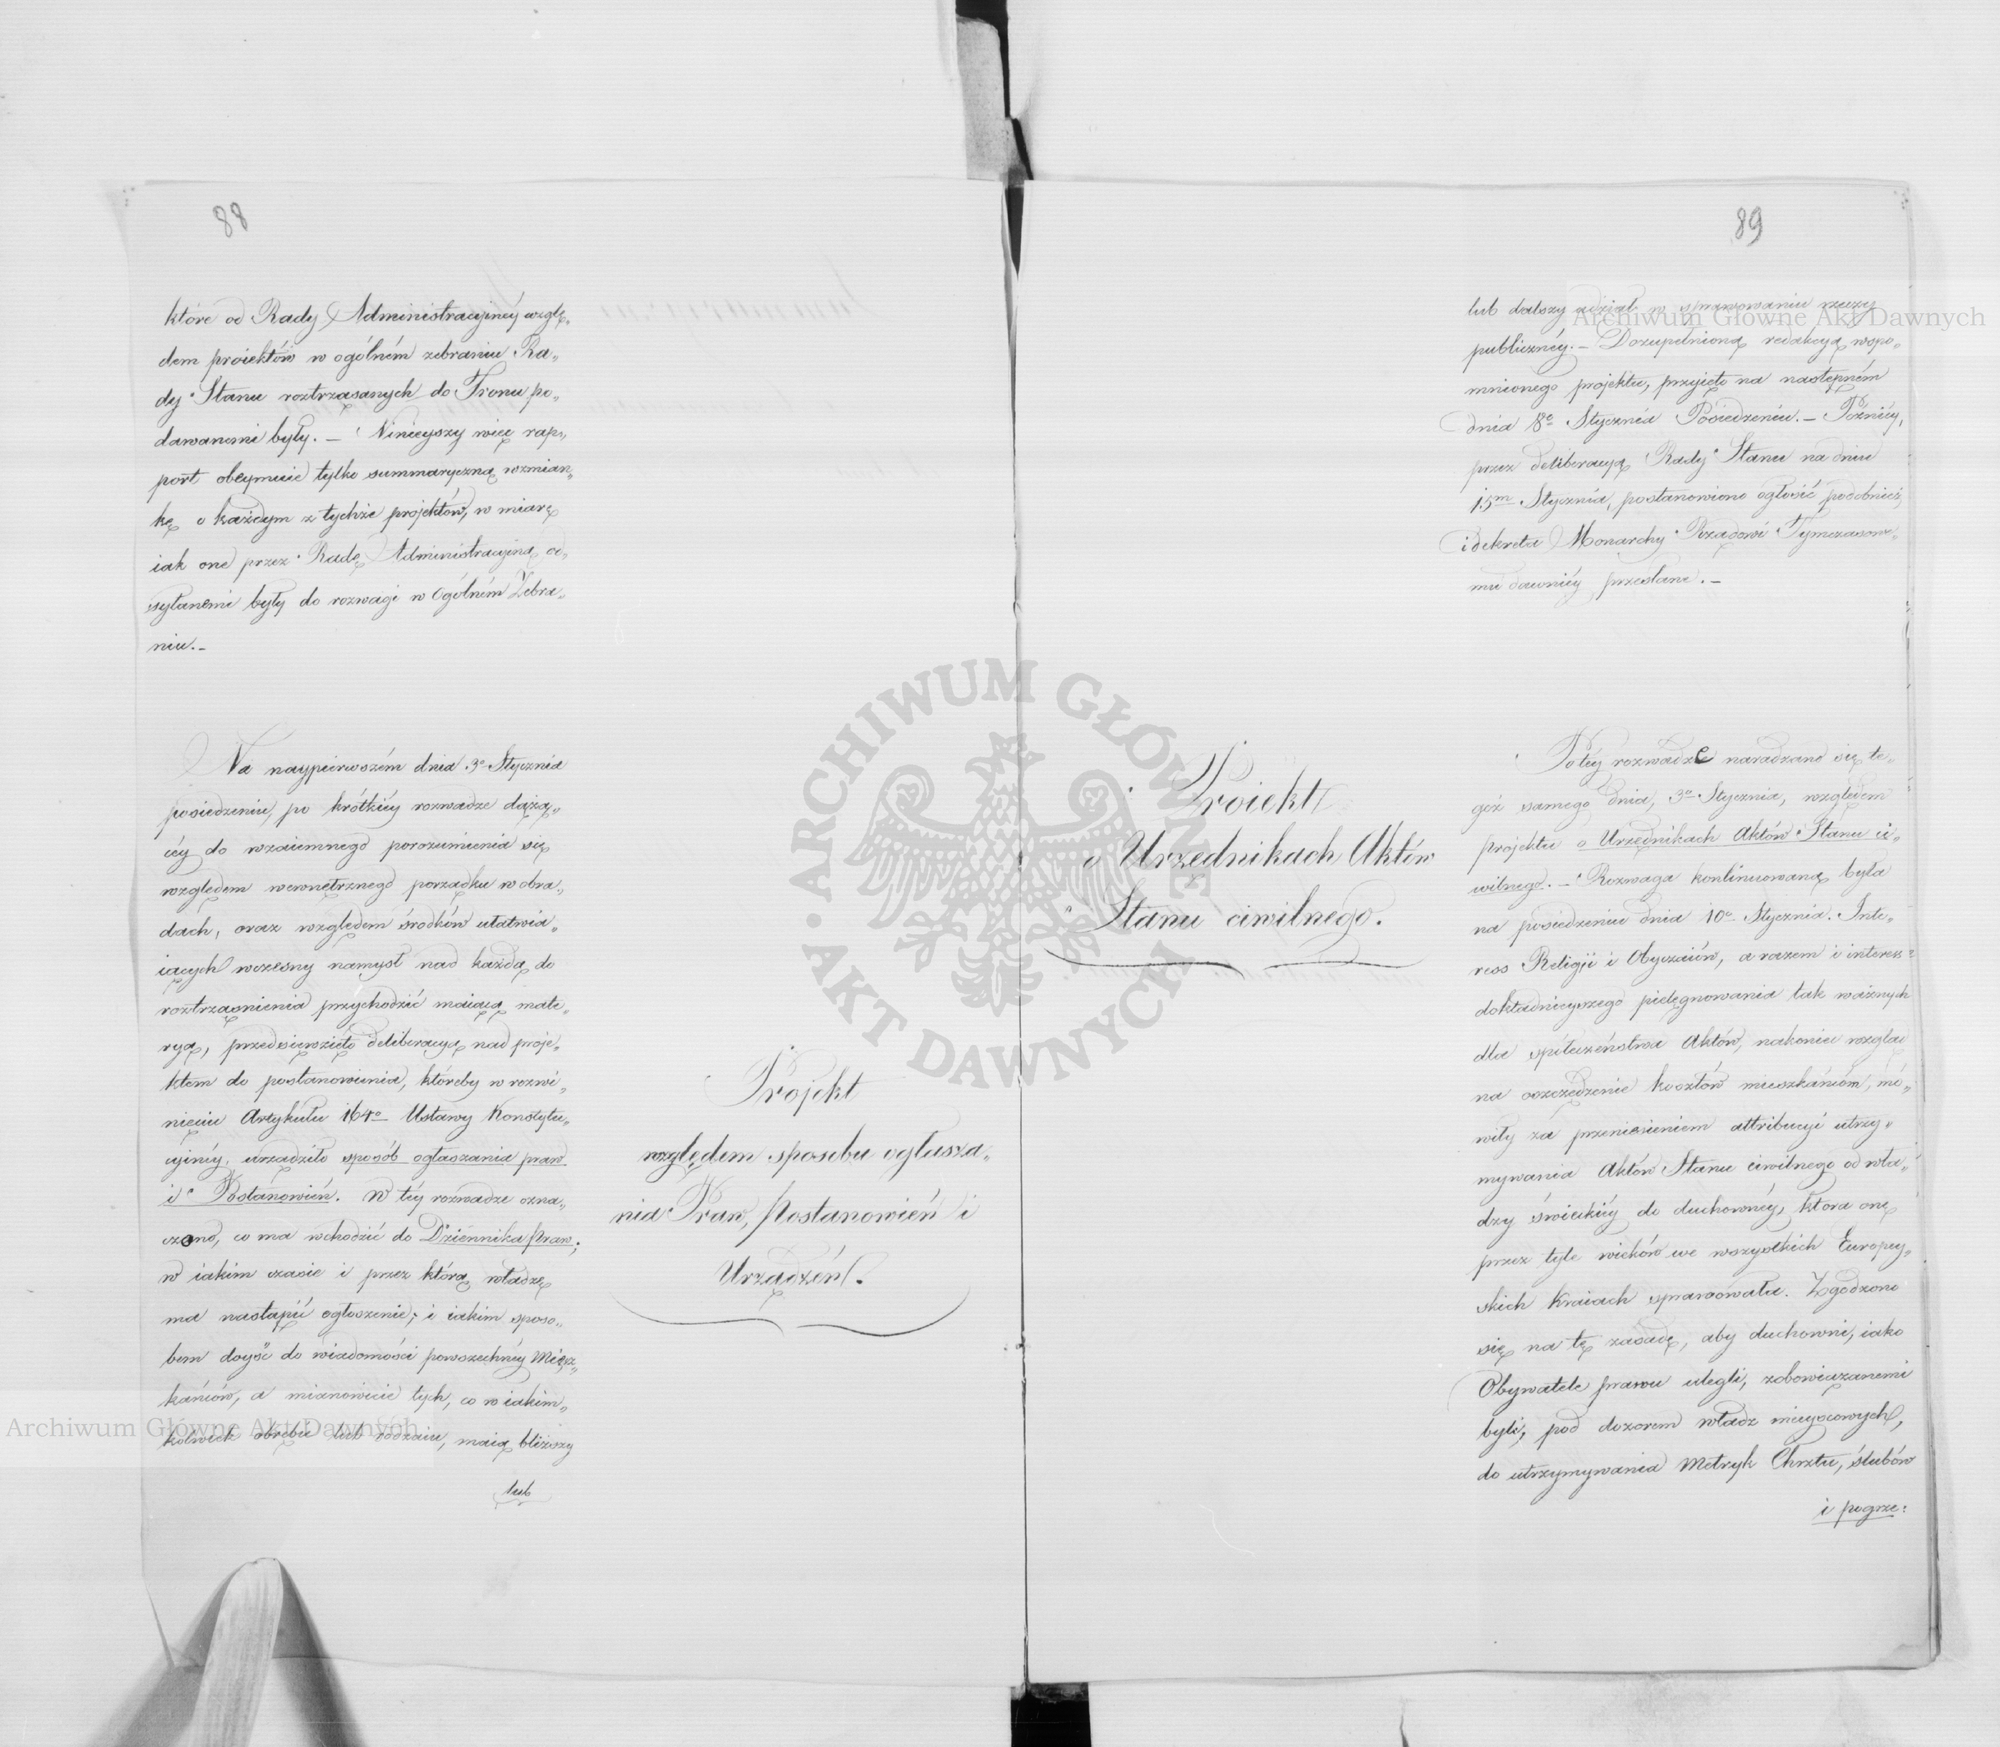 88
które od Rady Administracyinéy wzglę„
dem proiektów w ogólném zebraniu Ra„
dy Stanu roztrząsanych do Tronu po„
dawanemi były. – Ninieyszy więc rap„
port obeymuie tylko summaryczną wzmian„
kę o każdym z tychże projektów, w miarę
iak one przez Radę Administracyiną od„
syłanemi były do rozwagi w Ogólném Zebra„
niu. –
Na naypierwszém dnia 3º Stycznia
posiedzeniu, po krótkiéy rozwadze dążą„
céy do wzaiemnego porozumienia się
względem wewnętrznego porządku w obra„
dach, oraz względem środków ułatwia„
iących wczesny namysł nad każdą do
roztrząśnienia przychodzić maiącą mate„
ryą, przedsięwzięto deliberacyą nad proje„
ktem do postanowienia, któreby w rozwi„
nięciu Artykułu 164º Ustawy Konstytu„
cyinéy, urządziło sposób ogłaszania praw
i Postanowień. W téy rozwadze ozna„
czono, co ma wchodzić do Dziennika Praw;
w iakim czasie i przez którą władzę
ma nastąpić ogłoszenie; i iakim sposo„
bem doyść do wiadomości powszechnéy Miesz„
kańców, a mianowicie tych, co w iakim„
kolwiek obrębie lub rodzaiu, maią bliższy
lub
Projekt
względem sposobu ogłasza„
nia Praw, Postanowień i
Urządzeń.
89
lub dalszy udział w sprawowaniu rzeczy
publicznéy. – Dozupełnioną redakcyą wspo„
mnionego projektu, przyjęto na następném
dnia 8º Stycznia Posiedzeniu. – Późniéy,
przez deliberacyą Rady Stanu na dniu
15m Stycznia, postanowiono ogłosić podobnież,
i dekreta Monarchy Rządowi Tymczasowe„
mu dawniéy przesłane. –
Proiekt
o Urzędnikach Aktów
Stanu ciwilnego.
Po téy rozwadze naradzano się te„
goż samego dnia, 3º Stycznia, względem
projektu o Urzędnikach Aktów Stanu ci„
wilnego. – Rozwaga kontinuowaną była
na posiedzeniu dnia 10º Stycznia. Inte„
ress Religji i Obyczaiów, a razem i interess
dokładnieyszego pielęgnowania tak ważnych
dla społeczeństwa Aktów, nakoniec wzgląd
na oszczędzenie kosztów mieszkańcom, mó„
wiły za przeniesieniem attribucyi utrzy„
mywania Aktów Stanu ciwilnego od wła„
dzy świeckiéy do duchownéy, która onę
przez tyle wieków we wszystkich Europey„
skich Kraiach sprawowała. Zgodzono
się na tę zasadę, aby duchowni, iako
Obywatele prawu ulegli, zobowiązanemi
byli, pod dozorem władz mieyscowych,
do utrzymywania Metryk Chrztu, ślubów
i pogrze:
ARCHIWUM GŁÓWNE AKT DAWNYCH
Archiwum Główne Akt Dawnych
Archiwum Główne Akt Dawnych